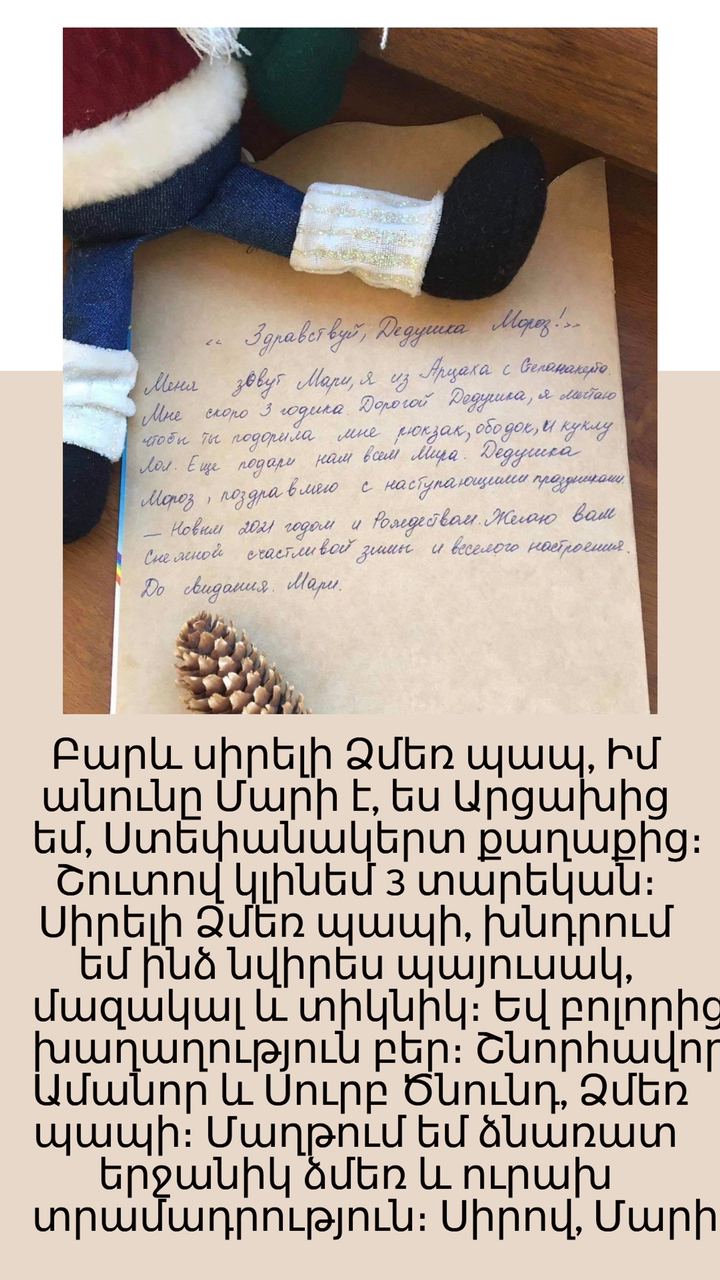 „ Здравствуй, Дедушка Мороз!"
Меня зовут Мари, я из Арцаха с Степанакерта.
Мне скоро 3 годика. Дорогой Дедушка, я мечтаю
чтобы ты подорила мне рюкзак, ободок, и куклу
Лол. Еще подари нам всем Мира. Дедушка
Мороз, поздравляю с наступающими праздниками
— Новым 2021 годом и Рождеством. Желаю вам
снежной счастливой зимы и веселого настроения.
До свидания. Мари.
Բարև սիրելի Ձմեռ պապ, Իմ
անունը Մարի է, ես Արցախից
եմ, Ստեփանակերտ քաղաքից։
Շուտով կլինեմ 3 տարեկան։
Սիրելի Ձմեռ պապի, խնդրում
եմ ինձ նվիրես պայուսակ,
մազակալ և տիկնիկ։ Եվ բոլորից
խաղաղություն բեր։ Շնորհավոր
Ամանոր և Սուրբ Ծնունդ, Ձմեռ
պապի։ Մաղթում եմ ձնառատ
երջանիկ ձմեռ և ուրախ
տրամադրություն։ Սիրով, Մարի